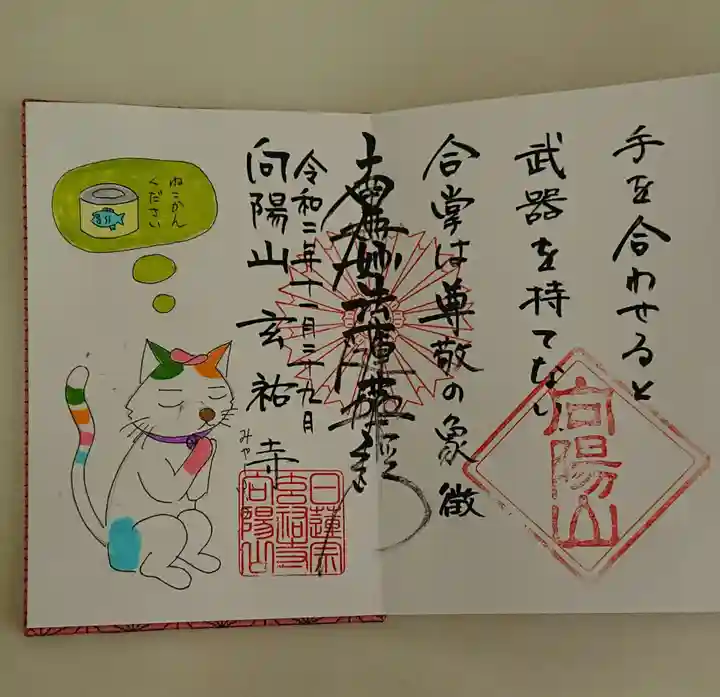 手を合わせると
武器を持てない
合掌は尊敬の象徴
南無妙法蓮華経
令和二年十一月二十九日
向陽山 玄祐寺
向陽山
日蓮宗
玄祐寺
向陽山
ねこかん
ください